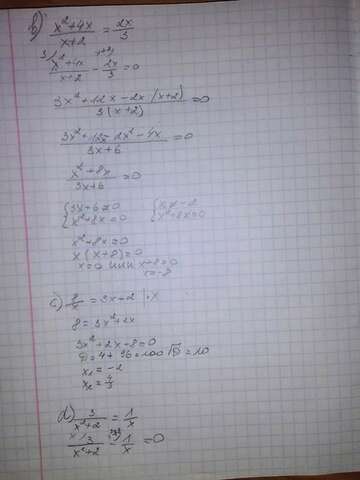 b) (x²+4x)/(x+2) = 2x/3
3/ (x²+4x)/(x+2) - x+2/ 2x/3 = 0
(3x²+12x-2x(x+2))/(3(x+2)) = 0
(3x²+12x-2x²-4x)/(3x+6) = 0
(x²+8x)/(3x+6) = 0
{3x+6≠0
{x²+8x=0 {x²+8x=0
x²+8x=0
x(x+8)=0
x=0 или x+8=0
x=-8
c) 8/x = 3x+2 | ·x
8=3x²+2x
3x²+2x-8=0
D=4+96=100 √D=10
x₁=-2
x₂=4/3
d) 3/(x²+2) = 1/x
x/ 3/(x²+2) - 1/x = 0